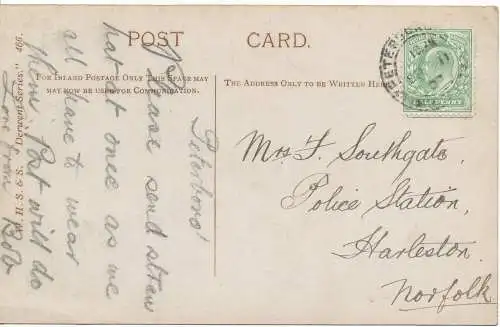 POST CARD.
FOR INLAND POSTAGE ONLY THIS SPACE MAY
MAY NOW BE USED FOR COMMUNICATION.
THE ADDRESS ONLY TO BE WRITTEN HERE
"Derwent Series." 466.
W. H. S. & S.
Peterboro'
Please send straw
hat at once as we
all have to wear
them. Post will do
Love from
Bob
PETERBOROUGH
HALFPENNY
Mrs F. Southgate,
Police Station,
Harleston
Norfolk